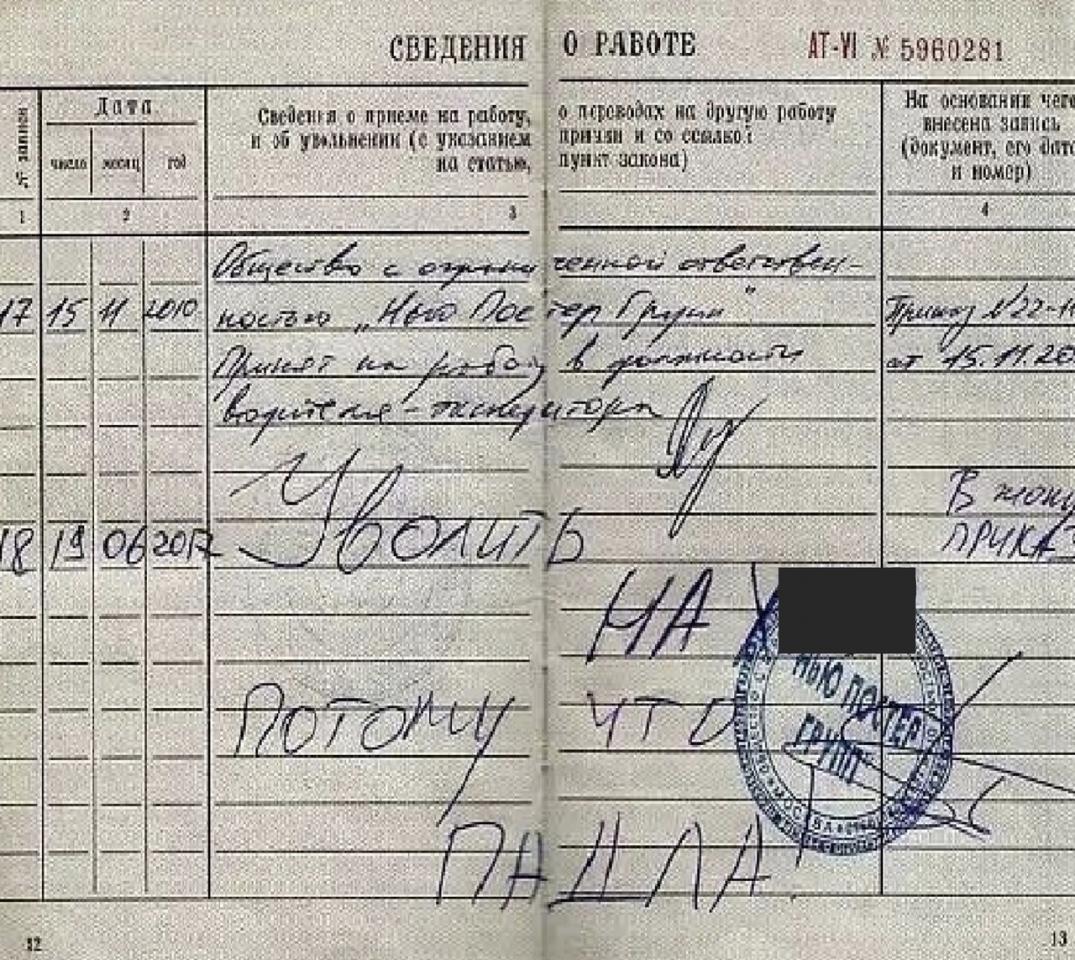 СВЕДЕНИЯ О РАБОТЕ АТ-VI № 5960281
№ записи
Дата
число месяц год
Сведения о приеме на работу, о переводах на другую работу
и об увольнении (с указанием причин и со ссылкой
на статью, пункт закона)
На основании чего
внесена запись
(документ, его дата
и номер)
1 2 3 4
Общество с ограниченной ответствен-
17 15 11 2010 ностью „Нью Постер Групп" Приказ №22-1
Принят на работу в должности от 15.11.20
водителя-экспедитора
В жопу
18 19 06 2017 Уволить ПРИКАЗ
НА
НЬЮ ПОСТЕР
ГРУПП
МОСКВА
ПОТОМУ ЧТО
ПАДЛА.
12 13